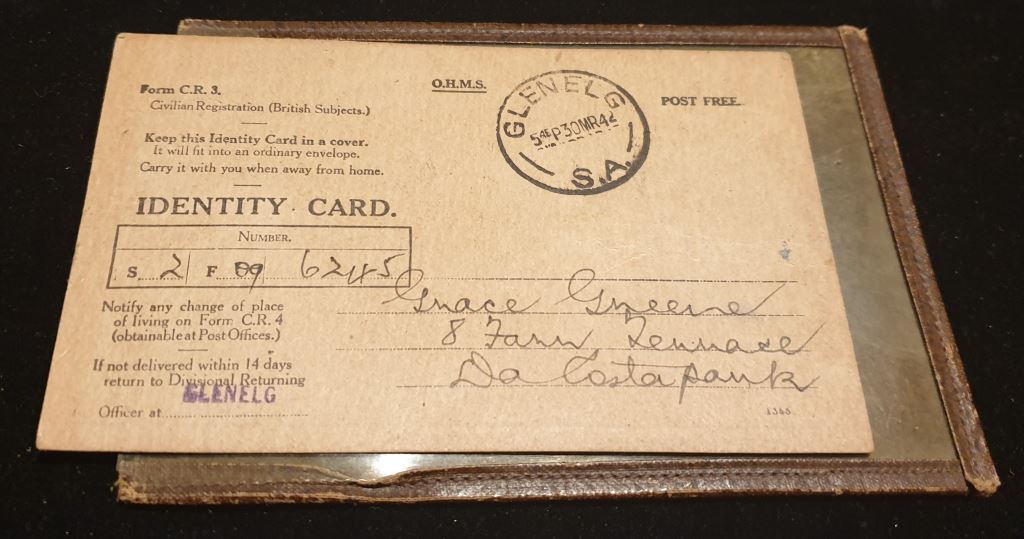 Form C.R. 3.
Civilian Registration (British Subjects.)
Keep this Identity Card in a cover.
It will fit into an ordinary envelope.
Carry it with you when away from home.
O.H.M.S.
GLENELG
5 45 P 30 MR 42
S.A.
POST FREE.
IDENTITY CARD.
NUMBER.
S 2 F 89 6245
Notify any change of place
of living on Form C.R. 4
(obtainable at Post Offices.)
If not delivered within 14 days
return to Divisional Returning
GLENELG
Officer at
Grace Greene
8 Farr Terrace
Da Costa park